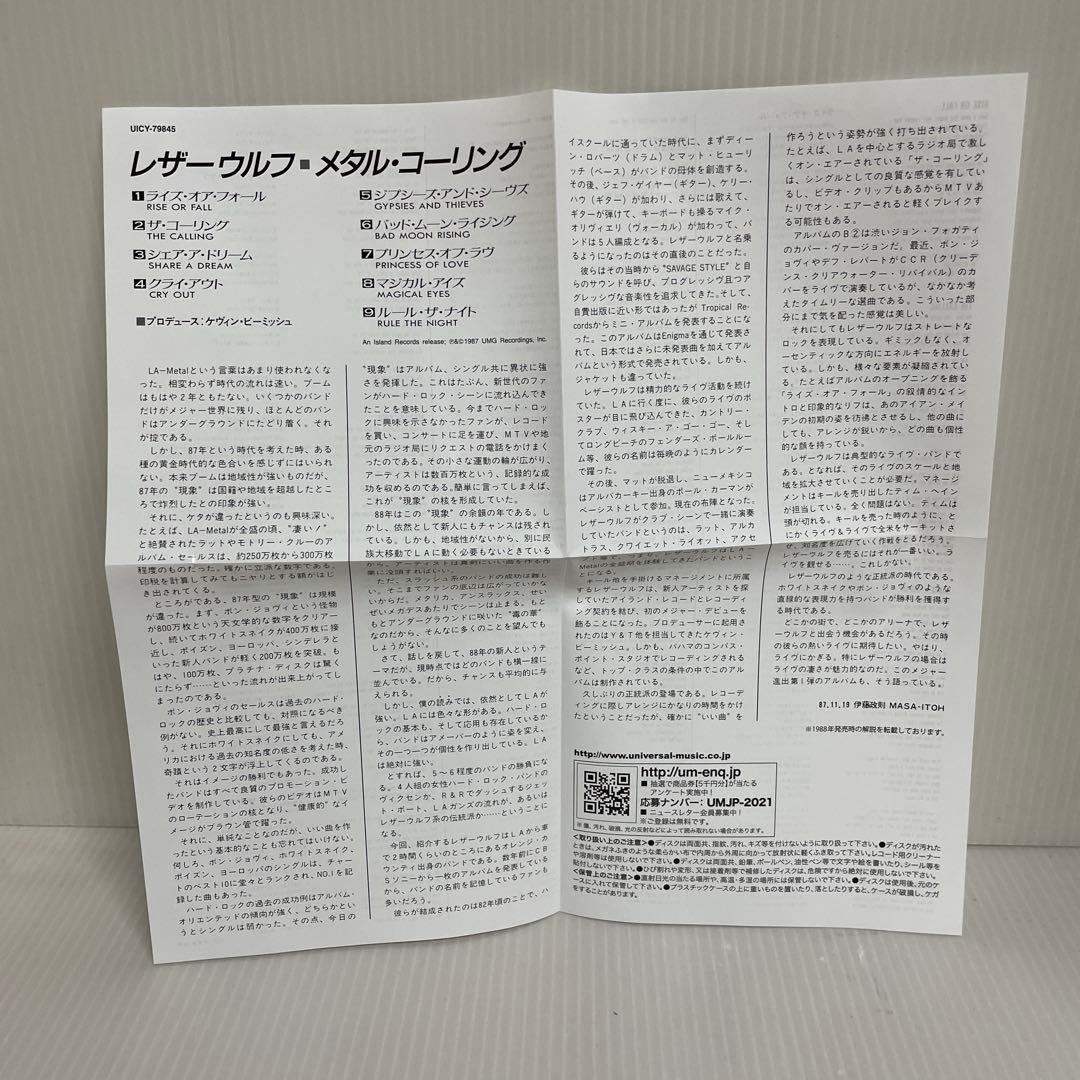 UICY-79845
レザーウルフ■メタル・コーリング
1 ライズ・オア・フォール
RISE OR FALL
2 ザ・コーリング
THE CALLING
3 シェア・ア・ドリーム
SHARE A DREAM
4 クライ・アウト
CRY OUT
■プロデュース：ケヴィン・ビーミッシュ
5 ジプシーズ・アンド・シーヴズ
GYPSIES AND THIEVES
6 バッド・ムーン・ライジング
BAD MOON RISING
7 プリンセス・オブ・ラヴ
PRINCESS OF LOVE
8 マジカル・アイズ
MAGICAL EYES
9 ルール・ザ・ナイト
RULE THE NIGHT
An Island Records release; ℗&©1987 UMG Recordings, Inc.
LA−Metalという言葉はあまり使われなくな
った。相変わらず時代の流れは速い。ブーム
はもはや２年ともたない。いくつかのバンド
だけがメジャー世界に残り、ほとんどのバン
ドはアンダーグラウンドにたどり着く。それ
が掟である。
しかし、87年という時代を考えた時、ある
種の黄金時代的な色合いを感じずにはいられ
ない。本来ブームは地域性が強いものだが、
87年の“現象”は国籍や地域を超越したとこ
ろで炸烈したとの印象が強い。
それに、ケタが違ったというのも興味深い。
たとえば、LA−Metalが全盛の頃、“凄い！”
と絶賛されたラットやモトリー・クルーのア
ルバム・セールスは、約250万枚から300万枚
程度のものだった。確かに立派な数字である。
印税を計算してみてもニヤリとする額がはじ
き出されてくる。
ところがである、87年型の“現象”は規模
が違った。まず、ボン・ジョヴィという怪物
が800万枚という天文学的な数字をクリアー
し、続いてホワイトスネイクが400万枚に接
近し、ポイズン、ヨーロッパ、シンデレラと
いった新人バンドが軽く200万枚を突破。も
はや、100万枚、プラチナ・ディスクは驚く
にたらず……といった流れが出来上がってし
まったのである。
ボン・ジョヴィのセールスは過去のハード・
ロックの歴史と比較しても、対照になるべき
例がない。史上最高にして最強と言えるだろ
う。それにホワイトスネイクにしても、アメ
リカにおける過去の知名度の低さを考えた時、
奇蹟という２文字が浮上してくるのである。
それはイメージの勝利でもあった。成功し
たバンドはすべて良質のプロモーション・ビ
デオを制作している。彼らのビデオはＭＴＶ
のローテーションの核となり、“健康的”なイ
メージがブラウン管で躍った。
それに、単純なことなのだが、いい曲を作
ったという基本的なことも忘れてはいけない。
何しろ、ボン・ジョヴィ、ホワイトスネイク、
ポイズン、ヨーロッパのシングルは、チャー
トのベスト10に堂々とランクされ、NO.1を記
録した曲もあった。
ハード・ロックの過去の成功例はアルバム・
オリエンテッドの傾向が強く、どちらかとい
うとシングルは弱かった。その点、今日の
“現象”はアルバム、シングル共に異状に強
さを発揮した。これはたぶん、新世代のファ
ンがハード・ロック・シーンに流れ込んでき
たことを意味している。今までハード・ロッ
クに興味を示さなかったファンが、レコード
を買い、コンサートに足を運び、ＭＴＶや地
元のラジオ局にリクエストの電話をかけまく
ったのである。その小さな運動の輪が広がり、
アーティストは数百万枚という、記録的な成
功を収めるのである。簡単に言ってしまえば、
これが“現象”の核を形成していた。
88年はこの“現象”の余韻の年である。し
かし、依然として新人にもチャンスは残され
ている。しかも、地域性がないから、別に民
族大移動でＬＡに動く必要もないときている
から、アーティストは真剣にいい曲を作る作
業に没頭すればいい。
ただ、スラッシュ系のバンドの成功は難し
い。そこまでファンの底辺は広がっていかな
いからだ。メタリカ、アンスラックス、せい
ぜいメガデスあたりでシーンは止まる。もと
もとアンダーグラウンドに咲いた“毒の華”
なのだから、そんなに多くのことを望んでも
しょうがない。
さて、話しを戻して、88年の新人というテ
ーマだが、現時点ではどのバンドも横一線に
並んでいる。だから、チャンスも平均的に与
えられる。
しかし、僕の読みでは、依然としてＬＡが
強い。ＬＡには色々な形がある。ハード・ロ
ックの基本も、そして応用も存在しているか
ら、バンドはアメーバーのように姿を変え、
その一つ一つが個性を作り出している。ＬＡ
は絶対に強い。
とすれば、５〜６程度のバンドの勝負にな
る。４人組の女性ハード・ロック・バンドの
ヴィクセンか、Ｒ＆Ｒでダッシュするジェッ
ト・ボート、ＬＡガンズの流れか、あるいは
レザーウルフ系の伝統派か……ということに
なる。
今回、紹介するレザーウルフはＬＡから車
で２時間くらいのところにあるオレンジ・カ
ウンティ出身のバンドである。数年前にＣＢ
Ｓソニーから一枚のアルバムを発表している
から、バンドの名前を記憶しているファンも
多いだろう。
彼らが結成されたのは82年頃のことで、ハ
イスクールに通っていた時代に、まずディー
ン・ロバーツ（ドラム）とマット・ヒューリ
ッチ（ベース）がバンドの母体を創造する。
その後、ジェフ・ゲイヤー（ギター）、ケリー・
ハウ（ギター）が加わり、さらには歌えて、
ギターが弾けて、キーボードも操るマイク・
オリヴィエリ（ヴォーカル）が加わって、バ
ンドは５人編成となる。レザーウルフと名乗
るようになったのはその直後のことだった。
彼らはその当時から“SAVAGE STYLE”と自
らのサウンドを呼び、プログレッシヴ且つア
グレッシヴな音楽性を追求してきた。そして、
自費出版に近い形ではあったが Tropical Re-
cordsからミニ・アルバムを発表することにな
った。このアルバムはEnigmaを通じて発表さ
れて、日本ではさらに未発表曲を加えてアル
バムという形式で発売されている。しかも、
ジャケットも違っていた。
レザーウルフは精力的なライヴ活動を続け
ていた。ＬＡに行く度に、彼らのライヴのポ
スターが目に飛び込んできた。カントリー・
クラブ、ウィスキー・ア・ゴー・ゴー、そし
てロングビーチのフェンダーズ・ボールルー
ム等、彼らの名前は毎晩のようにカレンダー
で躍った。
その後、マットが脱退し、ニューメキシコ
はアルバカーキー出身のポール・カーマンが
ベーシストとして参加。現在の布陣となった。
レザーウルフがクラブ・シーンで一緒に演奏
していたというのは、ラット、アルカ
トラス、クワイエット・ライオット、アクセ
プト等で、つまり、レザーウルフはＬＡ−
Metalの全盛期を体験してきたバンドというこ
とになる。
キール他を手掛けるマネージメントに所属
するレザーウルフは、新人アーティストを探
していたアイランド・レコードとレコーディ
ング契約を結び、初のメジャー・デビューを
飾ることになった。プロデューサーに起用さ
れたのはＹ＆Ｔ他を担当してきたケヴィン・
ビーミッシュ。しかも、バハマのコンパス・
ポイント・スタジオでレコーディングされる
など、トップ・クラスの条件の中でこのアル
バムは制作されている。
久しぶりの正統派の登場である。レコーデ
ィングに際しアレンジにかなりの時間をかけ
たということだったが、確かに“いい曲”を
作ろうという姿勢が強く打ち出されている。
たとえば、ＬＡを中心とするラジオ局で激し
くオン・エアーされている「ザ・コーリング」
は、シングルとしての良質な感覚を有してい
るし、ビデオ・クリップもあるからＭＴＶあ
たりでオン・エアーされると軽くブレイクす
る可能性もある。
アルバムのＢ②は渋いジョン・フォガティ
のカバー・ヴァージョンだ。最近、ボン・ジ
ョヴィやデフ・レパートがＣＣＲ（クリーデ
ンス・クリアウォーター・リバイバル）のカ
バーをライヴで演奏しているが、なかなか考
えたタイムリーな選曲である。こういった部
分にまで気を配った感覚は美しい。
それにしてもレザーウルフはストレートな
ロックを表現している。ギミックもなく、オ
ーセンティックな方向にエネルギーを放射し
ている。しかも、様々な要素が凝縮されてい
る。たとえばアルバムのオープニングを飾る
「ライズ・オア・フォール」の叙情的なイン
トロと印象的なリフは、あのアイアン・メイ
デンの初期の姿を彷彿とさせるし、他の曲に
しても、アレンジが鋭いから、どの曲も個性
的な顔を持っている。
レザーウルフは典型的なライヴ・バンドで
ある。となれば、そのライヴのスケールと地
域を拡大させていくことが必要だ。マネージ
メントはキールを売り出したティム・ヘイン
が担当している。全く問題はない。ティムは
頭が切れる。キールを売った時のように、と
にかくライヴ＆ライヴで全米をサーキットさ
せ、知名度を広げていく作戦をとるだろう。
レザーウルフを売るにはそれが一番いい。ラ
イヴを観せる……、これしかない。
レザーウルフのような正統派の時代である。
ホワイトスネイクやボン・ジョヴィのような
直線的な表現力を持つバンドが勝利を獲得す
る時代である。
どこかの街、どこかのアリーナで、レザー
ウルフと出会う機会があるだろう。その時
の彼らの熱いライヴに期待したい。やはり、
ライヴにかぎる。特にレザーウルフの場合は
ライヴの凄さが魅力的なのだ。このメジャー
進出第１弾のアルバムも、そう語っている。
87.11.19 伊藤政則 MASA-ITOH
※1988年発売時の解説を転載しております。
http://www.universal-music.co.jp
http://um-enq.jp
■ 抽選で商品券【5千円分】が当たる
アンケート実施中！
応募ナンバー：UMJP-2021
■ ニュースレター会員募集中！
※ご登録は無料です。
※ 傷、汚れ、破損、光の反射などによって読み取れない場合があります。
<取り扱い上のご注意>●ディスクは両面共、指紋、汚れ、キズ等を付けないように取り扱って下さい。●ディスクが汚れた
ときは、メガネふきのような柔らかい布で内周から外周に向かって放射状に軽くふき取って下さい。レコード用クリーナー
や溶剤等は使用しないで下さい。●ディスクは両面共、鉛筆、ボールペン、油性ペン等で文字や絵を書いたり、シール等を
貼付しないで下さい。●ひび割れや変形、又は接着剤等で補修したディスクは、危険ですから絶対に使用しないで下さい。
<保管上のご注意>●直射日光の当たる場所や、高温・多湿の場所には保管しないで下さい。●ディスクは使用後、元のケ
ースに入れて保管して下さい。●プラスチックケースの上に重いものを置いたり、落としたりすると、ケースが破損し、ケガ
をすることがあります。